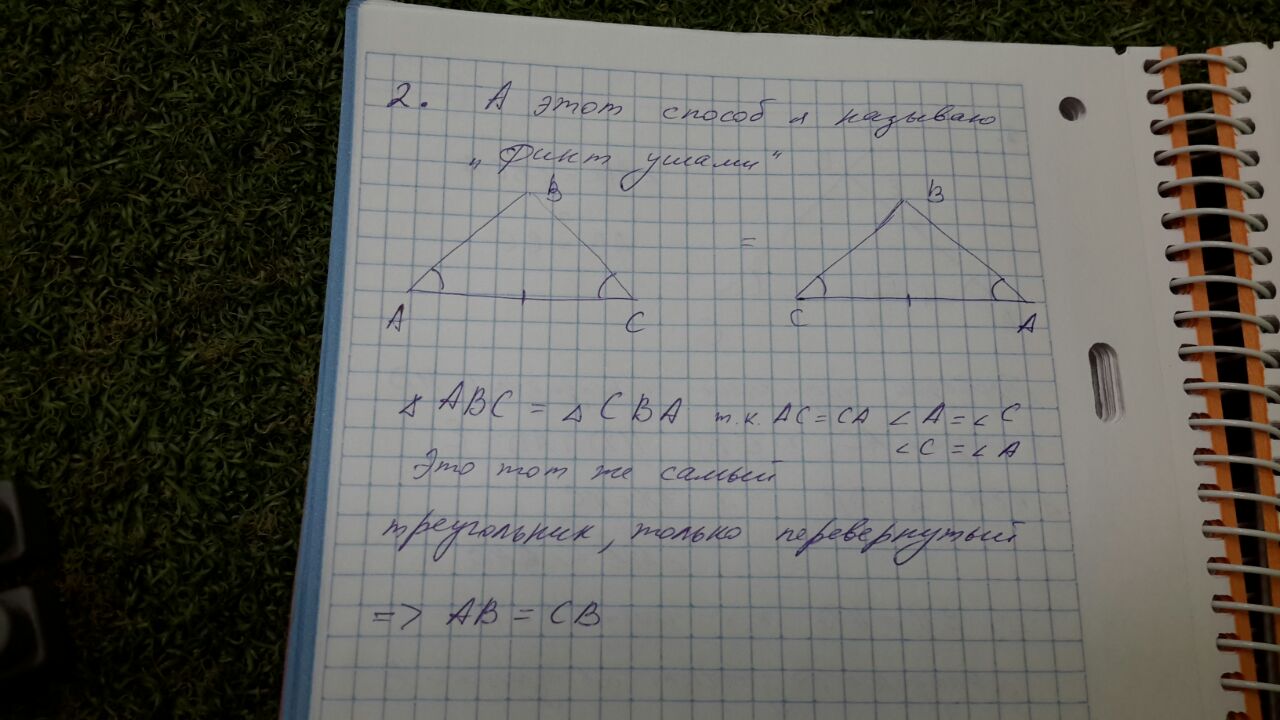 2. А этот способ я называю
„Финт ушами“
B B
=
A C C A
∆ ABC = ∆ CBA т.к. AC = CA ∠A = ∠C
∠C = ∠A
Это тот же самый
треугольник, только перевернутый
=> AB = CB